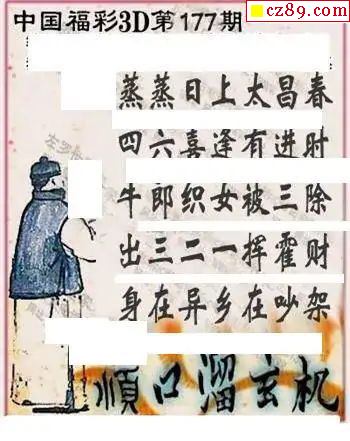 cz89.com
中国福彩3D第177期
蒸蒸日上太昌春
四六喜逢有进时
牛郎织女被三除
出三二一挥霍财
身在异乡在吵架
顺口溜玄机